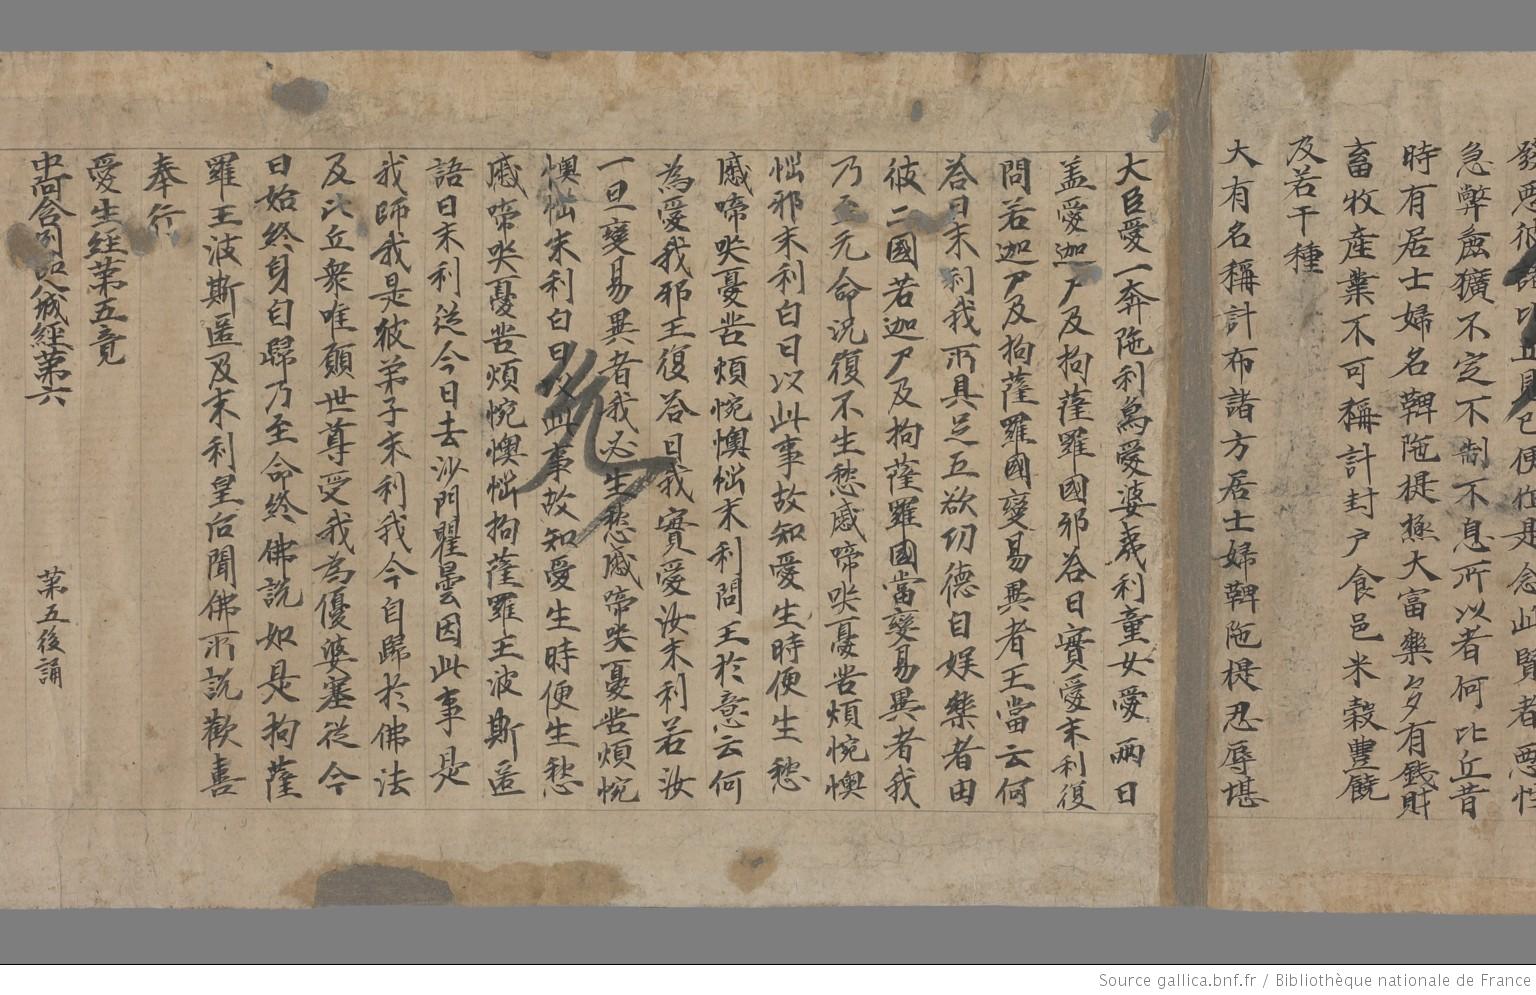 發惡彼
急弊麁獷不定不制不息所以者何比丘昔
時有居士婦名鞞陁提極大富樂多有錢財
畜牧產業不可稱計封戶食邑米穀豐饒
及若干種
大有名稱計布諸方居士婦鞞陁提忍辱堪
大臣愛一奔陁利烏愛婆夷利童女愛兩日
盖愛迦尸及拘薩羅國耶荅曰實愛末利復
問若迦尸及拘薩羅國變易異者王當云何
荅曰末利我所具足五欲功德自娛樂者由
彼二國若迦尸及拘薩羅國當變易異者我
乃至元命況復不生愁慼啼哭憂苦煩惋懊
惱耶末利白曰以此事故知愛生時便生愁
慼啼哭憂苦煩惋懊惱末利問王於意云何
為愛我耶王復荅曰我實愛汝末利若汝
一旦變易異者我必生愁慼啼哭憂苦煩惋
懊惱末利白曰以此事故知愛生時便生愁
慼啼哭憂苦煩惋懊惱拘薩羅王波斯匿
語曰末利從今日去沙門瞿曇因此事是
我師我是彼弟子末利我今自歸於佛法
及比丘衆唯願世尊受我為優婆塞從今
日始終身自歸乃至命終佛說如是拘薩
羅王波斯匿及末利皇后聞佛所說歡喜
奉行
愛生經第五竟
中阿含例品八城經第六 第五後誦
Source gallica.bnf.fr / Bibliothèque nationale de France